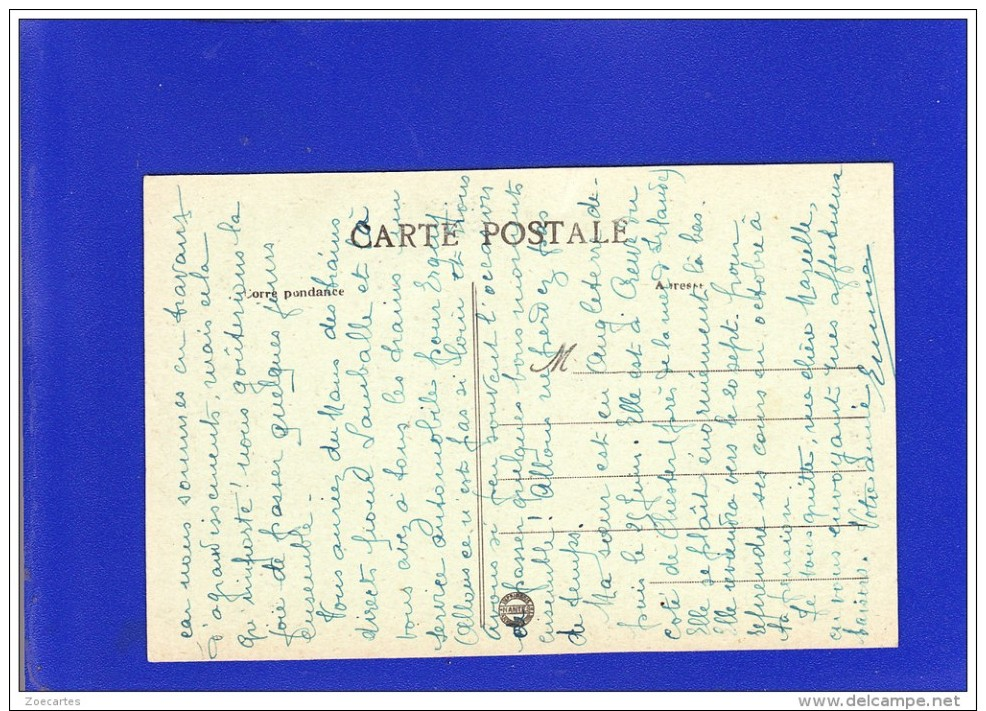 CARTE POSTALE
Corre pondance
Adresse
M
NANTES
car nous sommes en travaux
d'agrandissements, mais cela
qu'importe! nous goûterions la
joie de passer quelques jours
ensemble.
Vous auriez du Mans des trains
directs pour Lamballe et là
vous avez à tous les trains un
service automobile pour Erquy.
Allons ce n'est pas si loin et nous
avons si peu souvent l'occasion
de passer quelques bons moments
ensemble! Allons ne perdez pas
de temps.
Ma sœur est en Angleterre de-
puis le 25 juin. Elle est à
côté de Chester (près de la mer d'Irlande)
Elle se plaît énormément là bas.
Elle reviendra vers le 20 sept. pour
reprendre ses cours en octobre à
sa pension.
Je vous quitte, ma chère Marcelle,
en vous envoyant mes affectueux
baisers. Votre amie
Emma
Zoecartes
delcampe.net